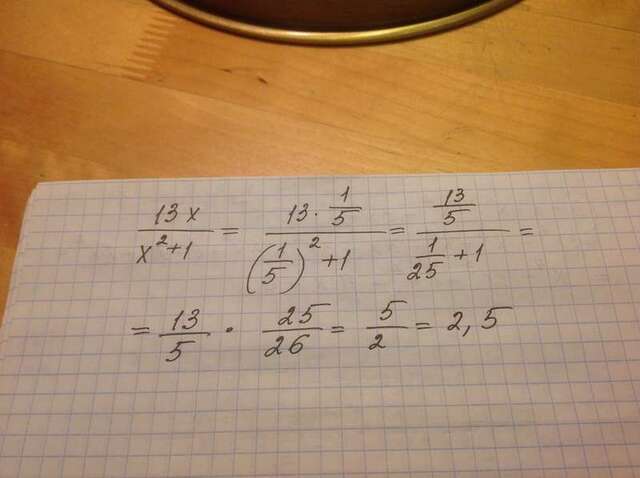 13x/(x²+1) = (13·1/5)/((1/5)²+1) = (13/5)/(1/25+1) =
= 13/5 · 25/26 = 5/2 = 2,5